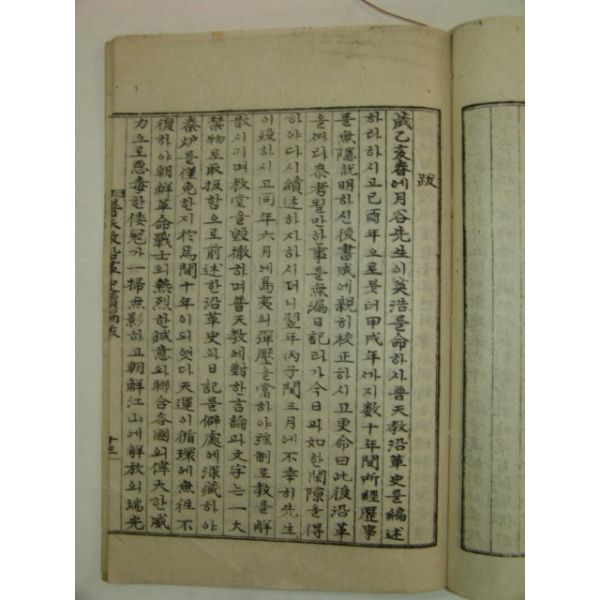 跋
歲乙亥春에月谷先生이英浩를命하사普天敎沿革史를編述
하라하시고己酉年으로봇터甲戌年까지數十年間所經歷事
를無隱說明하신後書成에親히校正하시고更命曰此後沿革
을따라參考될만하事를無漏日記라가今日과如한閑隙을得
하야다시續述하자하시더니翌年丙子閏三月에不幸히先生
이歿하시고同年六月에島夷의彈壓을當하야强制로敎를解
散시기며敎堂을毁撤하며普天敎에對한言論과文字는一大
禁物로取扱함으로前述한沿革史와日記를僻處에深藏하야
秦炉를僅免한지於焉間十年이되엿다天運이循環에無往不
復하야朝鮮革命戰士의熱烈한誠意와聯合各國의偉大한威
力으로惡毒한倭寇가一掃無影하고朝鮮江山에解放의瑞光
普天敎沿革史續編跋
十三